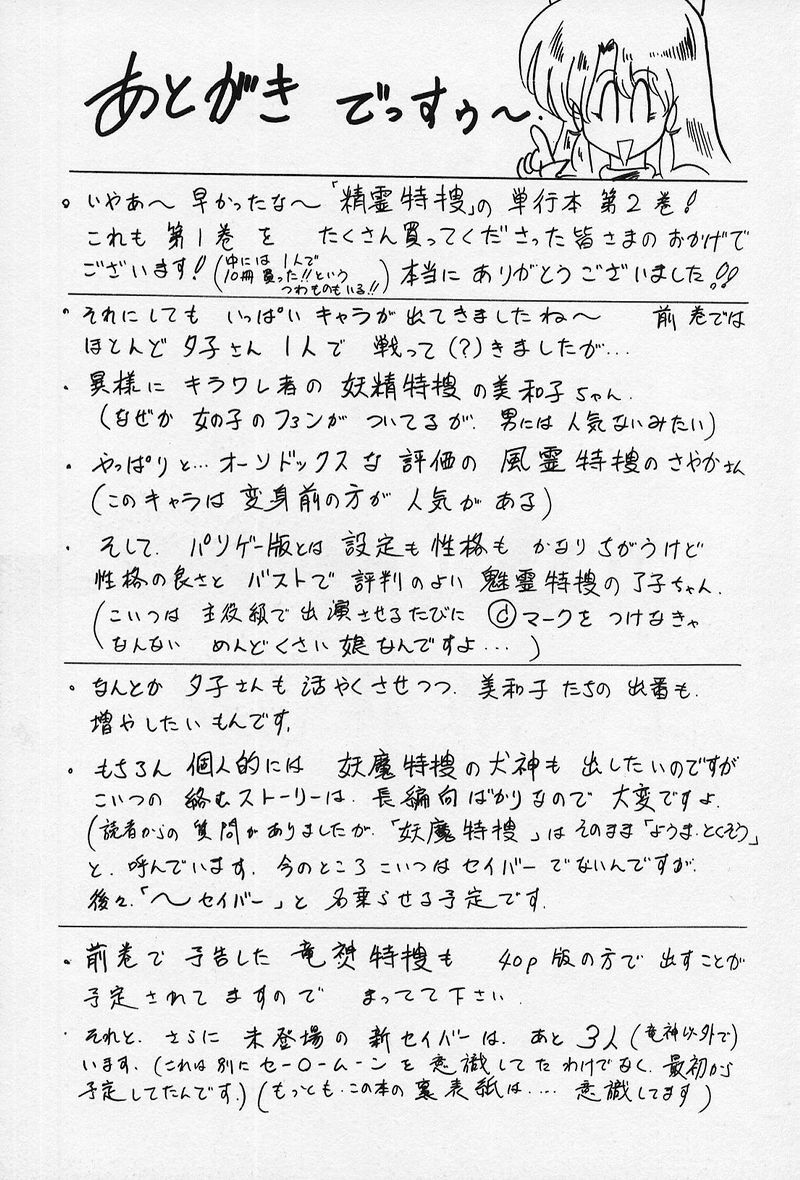 あとがき でっすぅ〜.
。いやあ〜 早かったな〜「精霊特捜」の 単行本 第2巻!
これも 第1巻 を たくさん買ってくださった皆さまの おかげで
ございます! (中には 1人で 10冊 買った!!という つわものもいる!!) 本当に ありがとうございました!!
・それにしても いっぱい キャラが 出てきましたね〜 前巻では
ほとんど 夕子さん 1人で 戦って(?)きましたが…
・異様に キラワレ者の 妖精特捜の美和子ちゃん.
(なぜか 女の子のファンが ついてるが. 男には人気ないみたい)
・やっぱりと… オーソドックスな 評価の 風霊特捜のさやかさん
(このキャラは 変身前の方が 人気が ある)
・そして. パソゲー版とは 設定も 性格も かなりちがうけど
性格の良さと バストで 評判のよい 魅霊特捜の了子ちゃん.
(こいつは 主役級で出演させるたびに ⓒマークを つけなきゃ
なんない めんどくさい 娘なんですよ…)
・なんとか 夕子さんも 活やくさせつつ. 美和子たちの 出番も.
増やしたいもんです.
・もちろん 個人的には 妖魔特捜の犬神も 出したいのですが
こいつの 絡むストーリーは. 長編向ばかりなので 大変ですよ.
(読者からの 質問がありましたが.「妖魔特捜」は そのまま「ようま.とくそう」
と. 呼んでいます. 今のところ こいつは セイバー でないんですが.
後々.「〜セイバー」と 名乗らせる予定です.
・前巻で 予告した 竜神特捜も 40p 版の方で 出すことが
予定されて ますので まってて下さい.
・それと. さらに 未登場の 新セイバーは. あと 3人(竜神以外で)
います. (これは 別に セーロームーン を 意識してた わけでなく. 最初から
予定してたんです.) (もっとも.この本の 裏表紙は.… 意識してます)